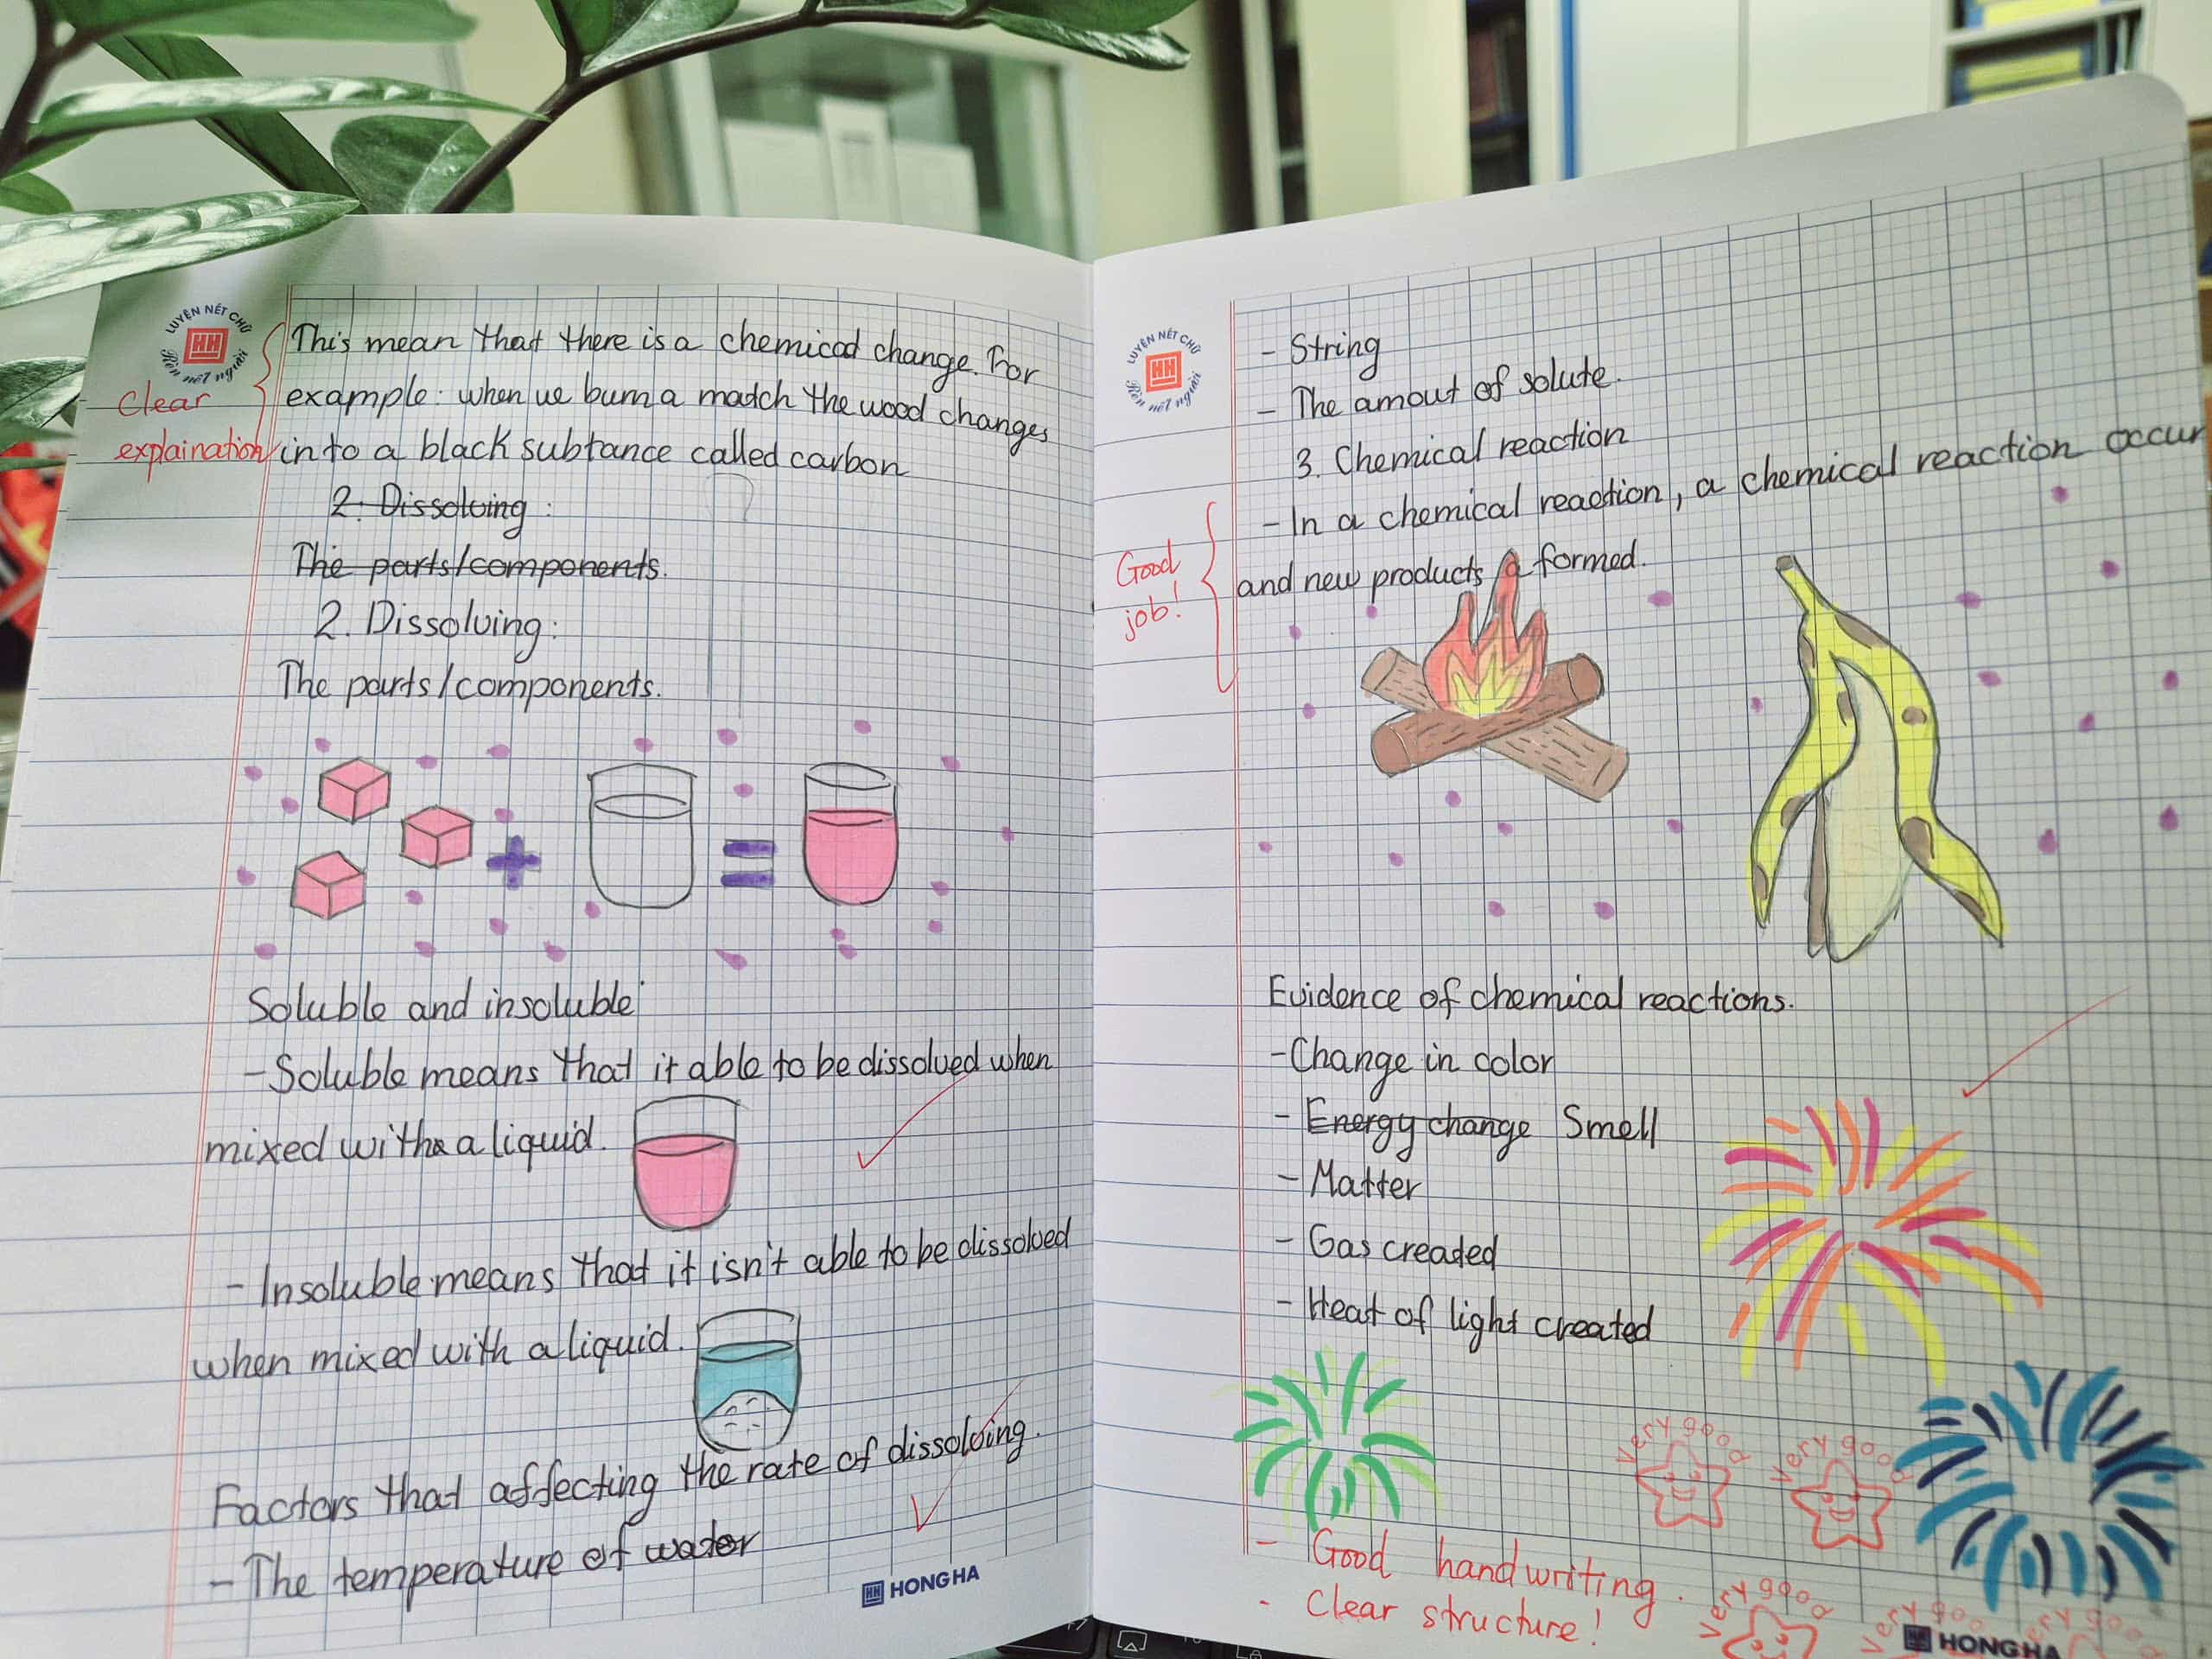 LUYỆN NÉT CHỮ
HH
Rèn nết người
This mean that there is a chemical change. For
example: when we burn a match the wood changes
into a black subtance called carbon
Clear
explaination
2. Dissolving:
The parts/components.
2. Dissolving:
The parts/components.
Soluble and insoluble
- Soluble means that it able to be dissolved when
mixed with a liquid.
- Insoluble means that it isn't able to be dissolved
when mixed with a liquid.
Factors that affecting the rate of dissolving.
- The temperature of water
HH HONG HA
LUYỆN NÉT CHỮ
HH
Rèn nết người
- String
- The amout of solute.
3. Chemical reaction
- In a chemical reaction, a chemical reaction occur
and new products a formed.
Good
job!
Evidence of chemical reactions.
- Change in color
- Energy change Smell
- Matter
- Gas created
- Heat of light created
very good
very good
- Good handwriting.
- Clear structure!
very good
very good
very good
HH HONG HA